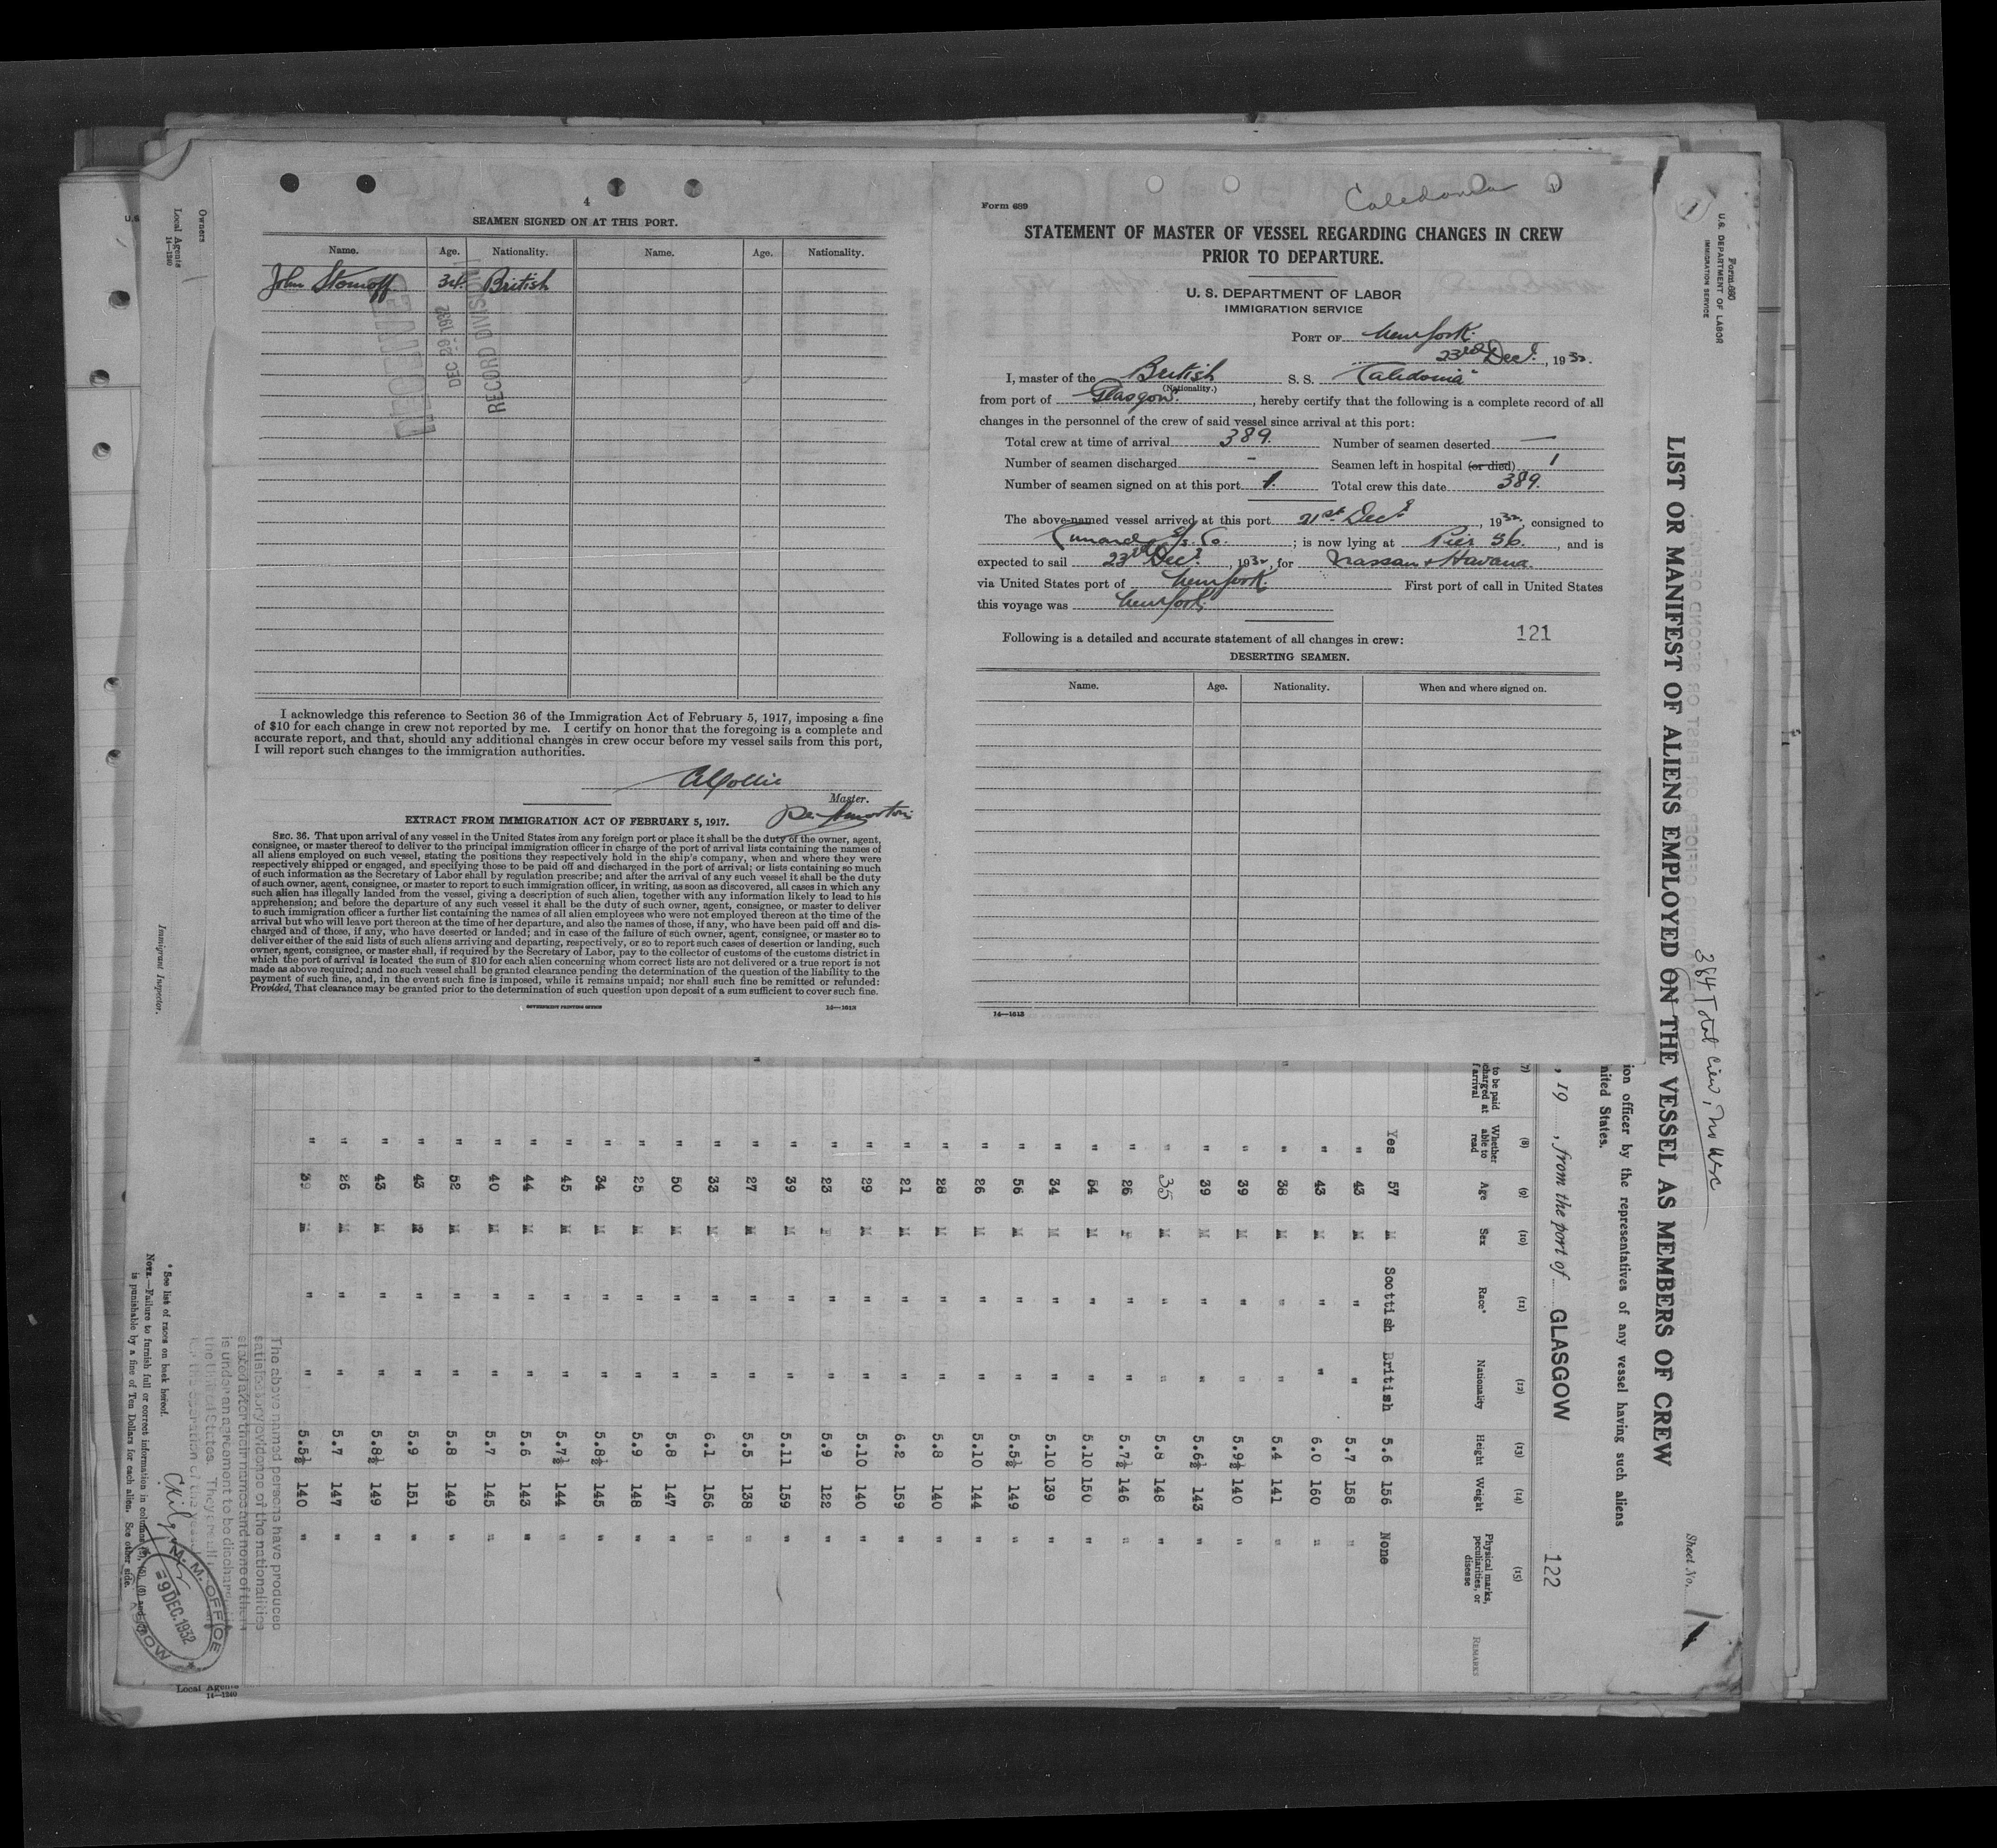 4
SEAMEN SIGNED ON AT THIS PORT.
Name. Age. Nationality. Name. Age. Nationality.
John 34. British
RECEIVED
DEC 29 1932
RECORD DIVISION
I acknowledge this reference to Section 36 of the Immigration Act of February 5, 1917, imposing a fine
of $10 for each change in crew not reported by me. I certify on honor that the foregoing is a complete and
accurate report, and that, should any additional changes in crew occur before my vessel sails from this port,
I will report such changes to the immigration authorities.
Master.
EXTRACT FROM IMMIGRATION ACT OF FEBRUARY 5, 1917.
SEC. 36. That upon arrival of any vessel in the United States from any foreign port or place it shall be the duty of the owner, agent,
consignee, or master thereof to deliver to the principal immigration officer in charge of the port of arrival lists containing the names of
all aliens employed on such vessel, stating the positions they respectively hold in the ship's company, when and where they were
respectively shipped or engaged, and specifying those to be paid off and discharged in the port of arrival; or lists containing so much
of such information as the Secretary of Labor shall by regulation prescribe; and after the arrival of any such vessel it shall be the duty
of such owner, agent, consignee, or master to report to such immigration officer, in writing, as soon as discovered, all cases in which any
such alien has illegally landed from the vessel, giving a description of such alien, together with any information likely to lead to his
apprehension; and before the departure of any such vessel it shall be the duty of such owner, agent, consignee, or master to deliver
to such immigration officer a further list containing the names of all alien employees who were not employed thereon at the time of the
arrival but who will leave port thereon at the time of her departure, and also the names of those, if any, who have been paid off and dis-
charged and of those, if any, who have deserted or landed; and in case of the failure of such owner, agent, consignee, or master so to
deliver either of the said lists of such aliens arriving and departing, respectively, or so to report such cases of desertion or landing, such
owner, agent, consignee, or master shall, if required by the Secretary of Labor, pay to the collector of customs of the customs district in
which the port of arrival is located the sum of $10 for each alien concerning whom correct lists are not delivered or a true report is not
made as above required; and no such vessel shall be granted clearance pending the determination of the question of the liability to the
payment of such fine, and, in the event such fine is imposed, while it remains unpaid; nor shall such fine be remitted or refunded:
Provided, That clearance may be granted prior to the determination of such question upon deposit of a sum sufficient to cover such fine.
GOVERNMENT PRINTING OFFICE 14—1613
Caledonia
Form 689
STATEMENT OF MASTER OF VESSEL REGARDING CHANGES IN CREW
PRIOR TO DEPARTURE.
U. S. DEPARTMENT OF LABOR
IMMIGRATION SERVICE
PORT OF New York.
23rd Decr., 1932.
I, master of the British S. S. "Caledonia"
(Nationality.)
from port of Glasgow., hereby certify that the following is a complete record of all
changes in the personnel of the crew of said vessel since arrival at this port:
Total crew at time of arrival 389. Number of seamen deserted —
Number of seamen discharged - Seamen left in hospital (or died) 1
Number of seamen signed on at this port 1. Total crew this date 389.
The above-named vessel arrived at this port 21st Decr, 1932, consigned to
Cunard S/S. Co. ; is now lying at Pier 56., and is
expected to sail 23rd Decr., 1932, for Nassau & Havana.
via United States port of New York. First port of call in United States
this voyage was New York.
Following is a detailed and accurate statement of all changes in crew: 121
DESERTING SEAMEN.
Name. Age. Nationality. When and where signed on.
14—1613
Owners
Local Agents
14—1240
Immigrant Inspector.
1
Form 680
U.S. DEPARTMENT OF LABOR
IMMIGRATION SERVICE
LIST OR MANIFEST OF ALIENS EMPLOYED ON THE VESSEL AS MEMBERS OF CREW
384 Total Crew,
Sheet No. 1
ion officer by the representatives of any vessel having such aliens
nited States.
, 19 , from the port of GLASGOW 122
7) (8) (9) (10) (11) (12) (13) (14) (15)
to be paid
charged at
f arrival
Whether able to read Age Sex Race* Nationality Height Weight Physical marks, peculiarities, or disease REMARKS
Yes 57 M Scottish British 5.6 156 None
" 43 M " " 5.7 158 "
" 43 M " " 6.0 160 "
" 38 M " " 5.4 141 "
" 39 M " " 5.9½ 140 "
" 39 M " " 5.6½ 143 "
" 35 M " " 5.8 148 "
" 26 F " " 5.7½ 146 "
" 54 M " " 5.10 150 "
" 34 M " " 5.10 139 "
" 56 M " " 5.5½ 149 "
" 26 M " " 5.10 144 "
" 28 M " " 5.8 140 "
" 21 M " " 6.2 159 "
" 29 M " " 5.10 140 "
" 23 F " " 5.9 122 "
" 39 M " " 5.11 159 "
" 27 M " " 5.5 138 "
" 33 M " " 6.1 156 "
" 50 M " " 5.8 147 "
" 25 M " " 5.9 148 "
" 34 M " " 5.8½ 145 "
" 45 M " " 5.7½ 144 "
" 44 M " " 5.6 143 "
" 40 M " " 5.7 145 "
" 52 M " " 5.8 149 "
" 43 M " " 5.9 151 "
" 43 M " " 5.8½ 149 "
" 26 M " " 5.7 147 "
" 39 M " " 5.5½ 140 "
The above named persons have produced
satisfactory evidence of the nationalities
stated after their names and none of them
is under an agreement to be discharged
the United States.
* See list of races on back hereof.
NOTE.—Failure to furnish full or correct information in columns
is punishable by a fine of Ten Dollars for each alien. See other side.
M. M. OFFICE
9 DEC. 1932
GLASGOW
Local Agents
14—1240